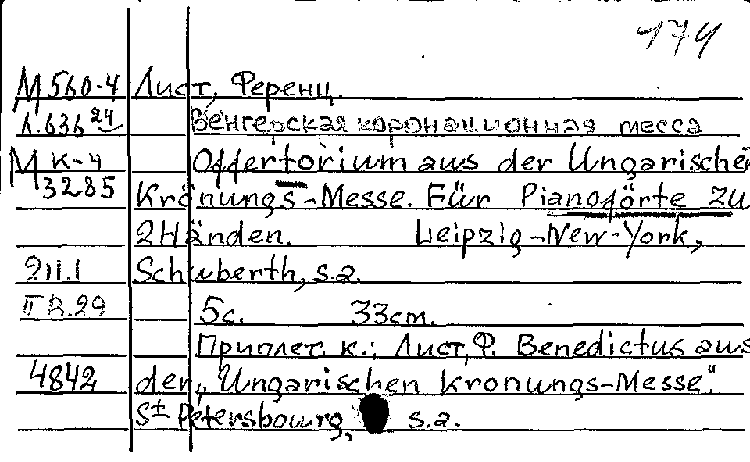 174
М 560-4 Лист, Ференц.
к.636 24 Венгерская коронационная месса
М к-4 Offertorium aus der Ungarischen
3285 Krönungs-Messe. Für Pianoforte zu
2 Händen. Leipzig-New-York,
2Ц.1 Schuberth, s.a.
II В.29 5с. 33cm.
Приплет. к.: Лист, Ф. Benedictus aus
4842 der „Ungarischen Kronungs-Messe".
St Petersbourg, s.a.